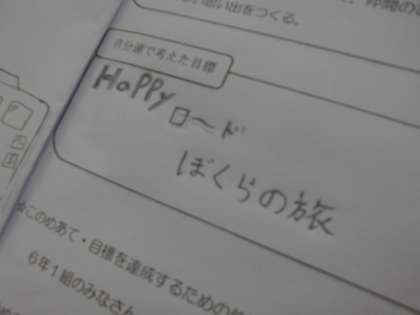 い出をつくる。
自分達で考えた目標
HaPPy
ロード
ぼくらの旅
☆このめあて・目標を達成するための
6年1組のみなさん